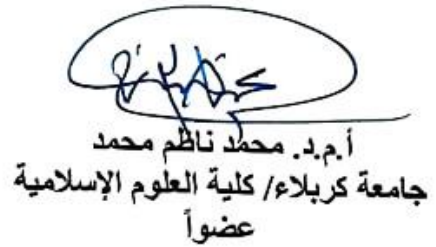 أ.م.د. محمد ناظم محمد
جامعة كربلاء/ كلية العلوم الإسلامية
عضواً